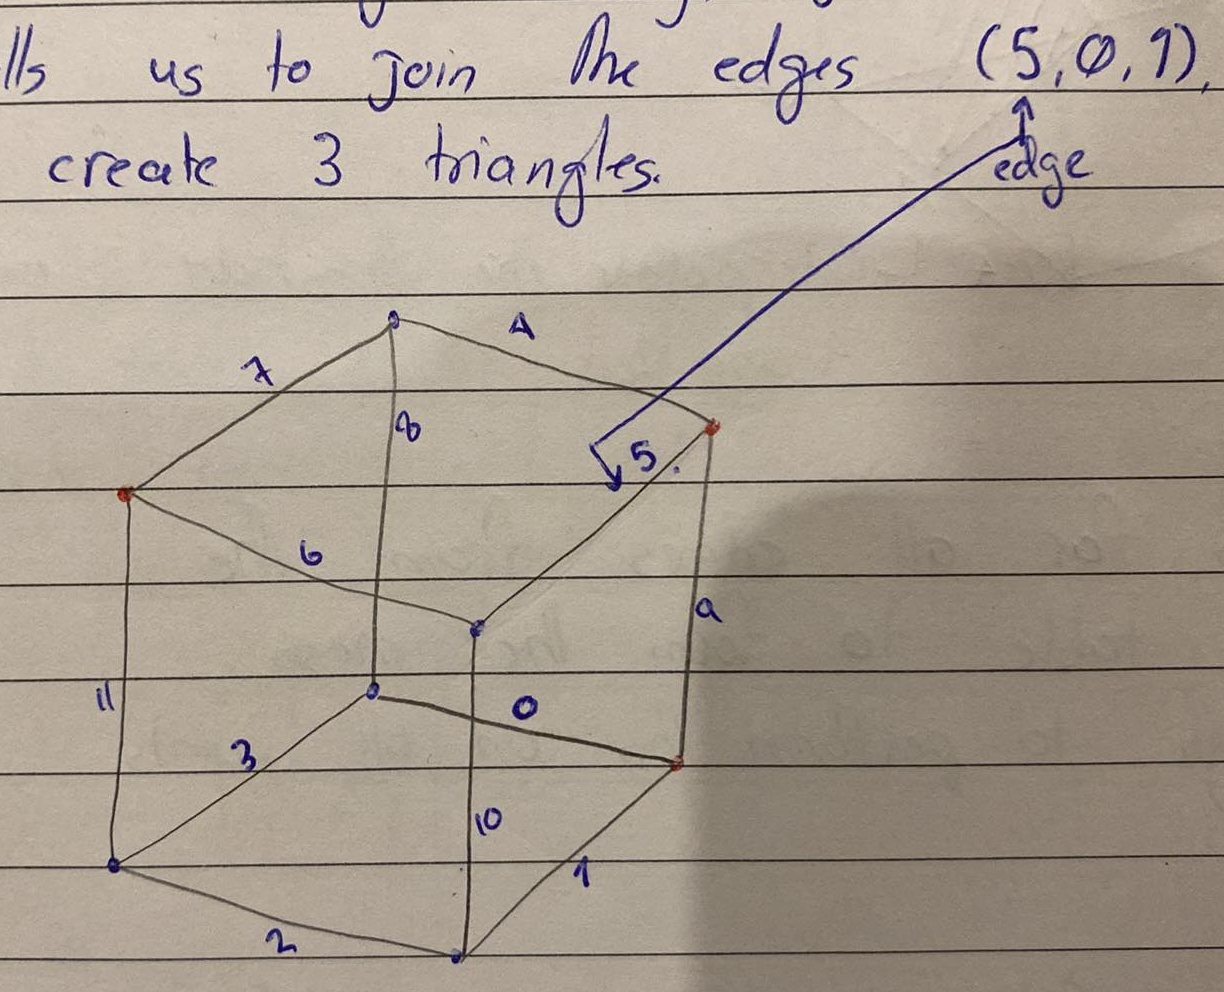 lls us to join the edges (5,0,1),
create 3 triangles.
edge
4
7
8
5.
6
9
11
0
3
10
1
2